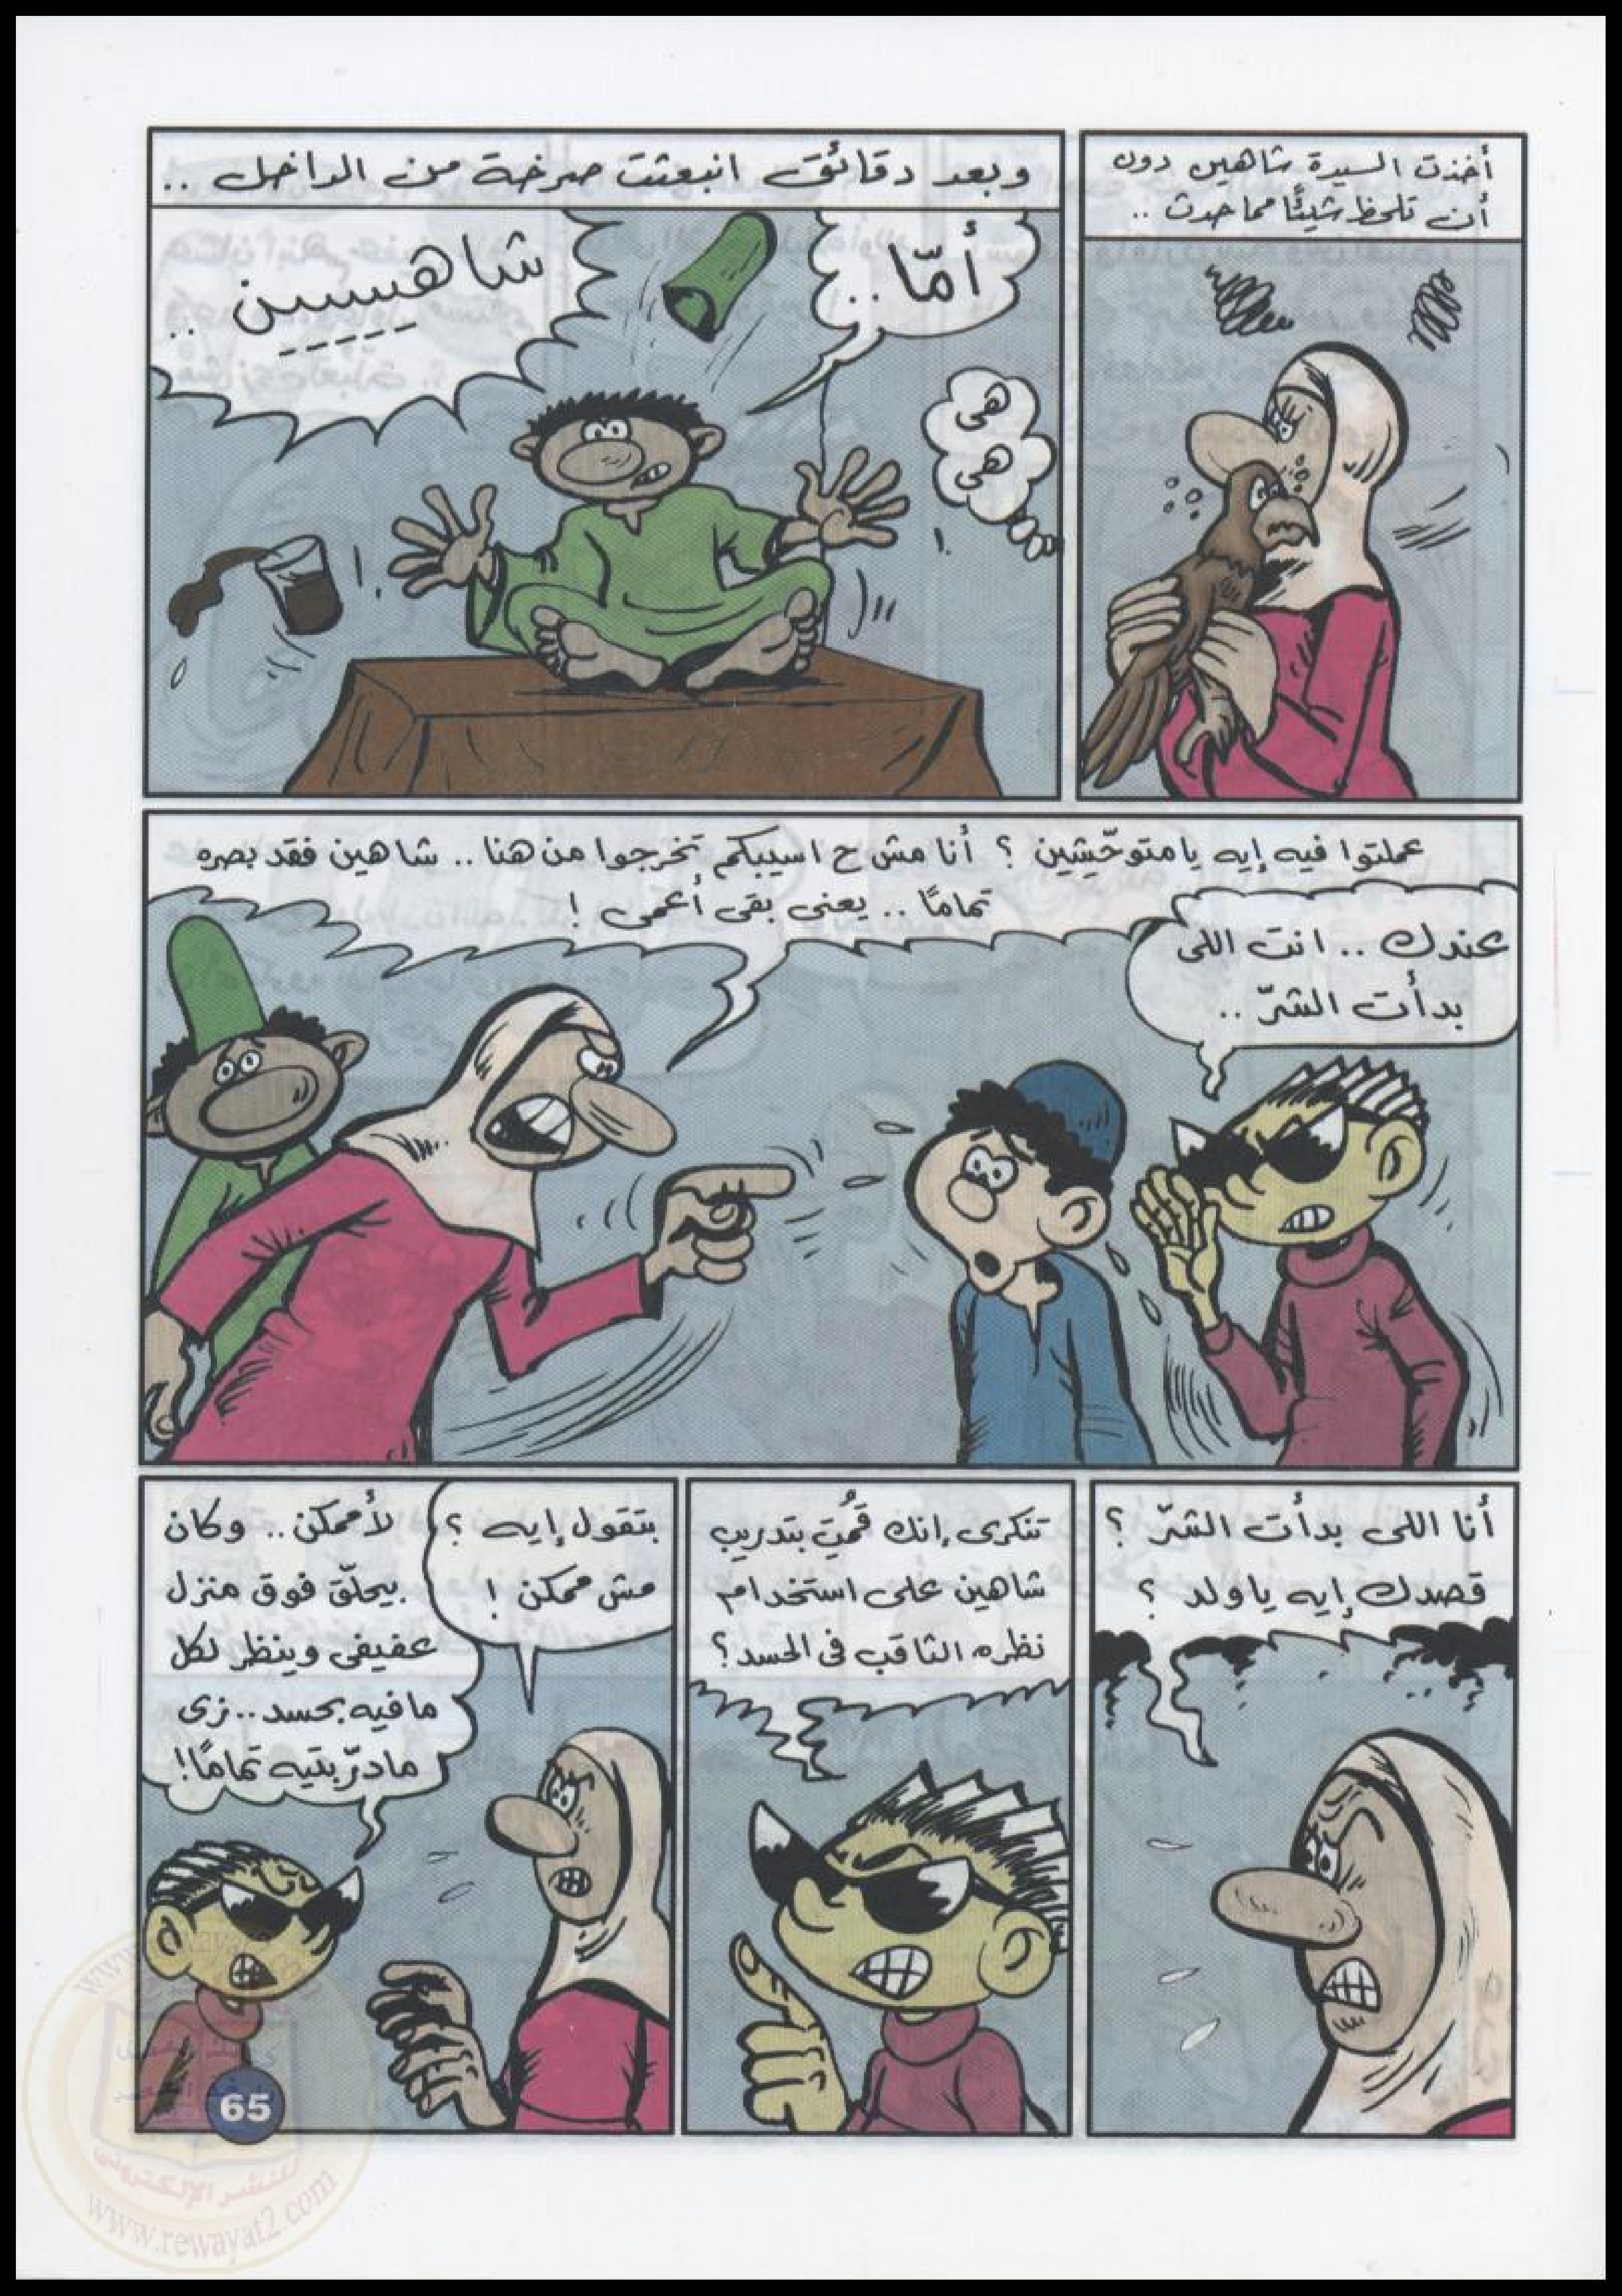 أخذت السيدة شاهين دون
أن تلحظ شيئًا مما حدث ..
وبعد دقائق انبعثت صرخة من الداخل ..
أمّا ..
شاهيييين ..
هى
هى
عملتوا فيه إيه يا متوحّشين ؟ أنا مش ح اسيبكم تخرجوا من هنا .. شاهين فقد بصره
تمامًا .. يعنى بقى أعمى !
عندك .. انت اللى
بدأت الشرّ ..
أنا اللى بدأت الشرّ ؟
قصدك إيه يا ولد ؟
تنكرى إنك قُمتِ بتدريب
شاهين على استخدام
نظره الثاقب فى الحسد ؟
بتقول إيه ؟
مش ممكن !
لأ ممكن .. وكان
بيحلّق فوق منزل
عفيفى وينظر لكل
ما فيه بحسد .. زى
ما درّبتيه تمامًا !
65
للنشر الإلكترونى
www.rewayat2.com